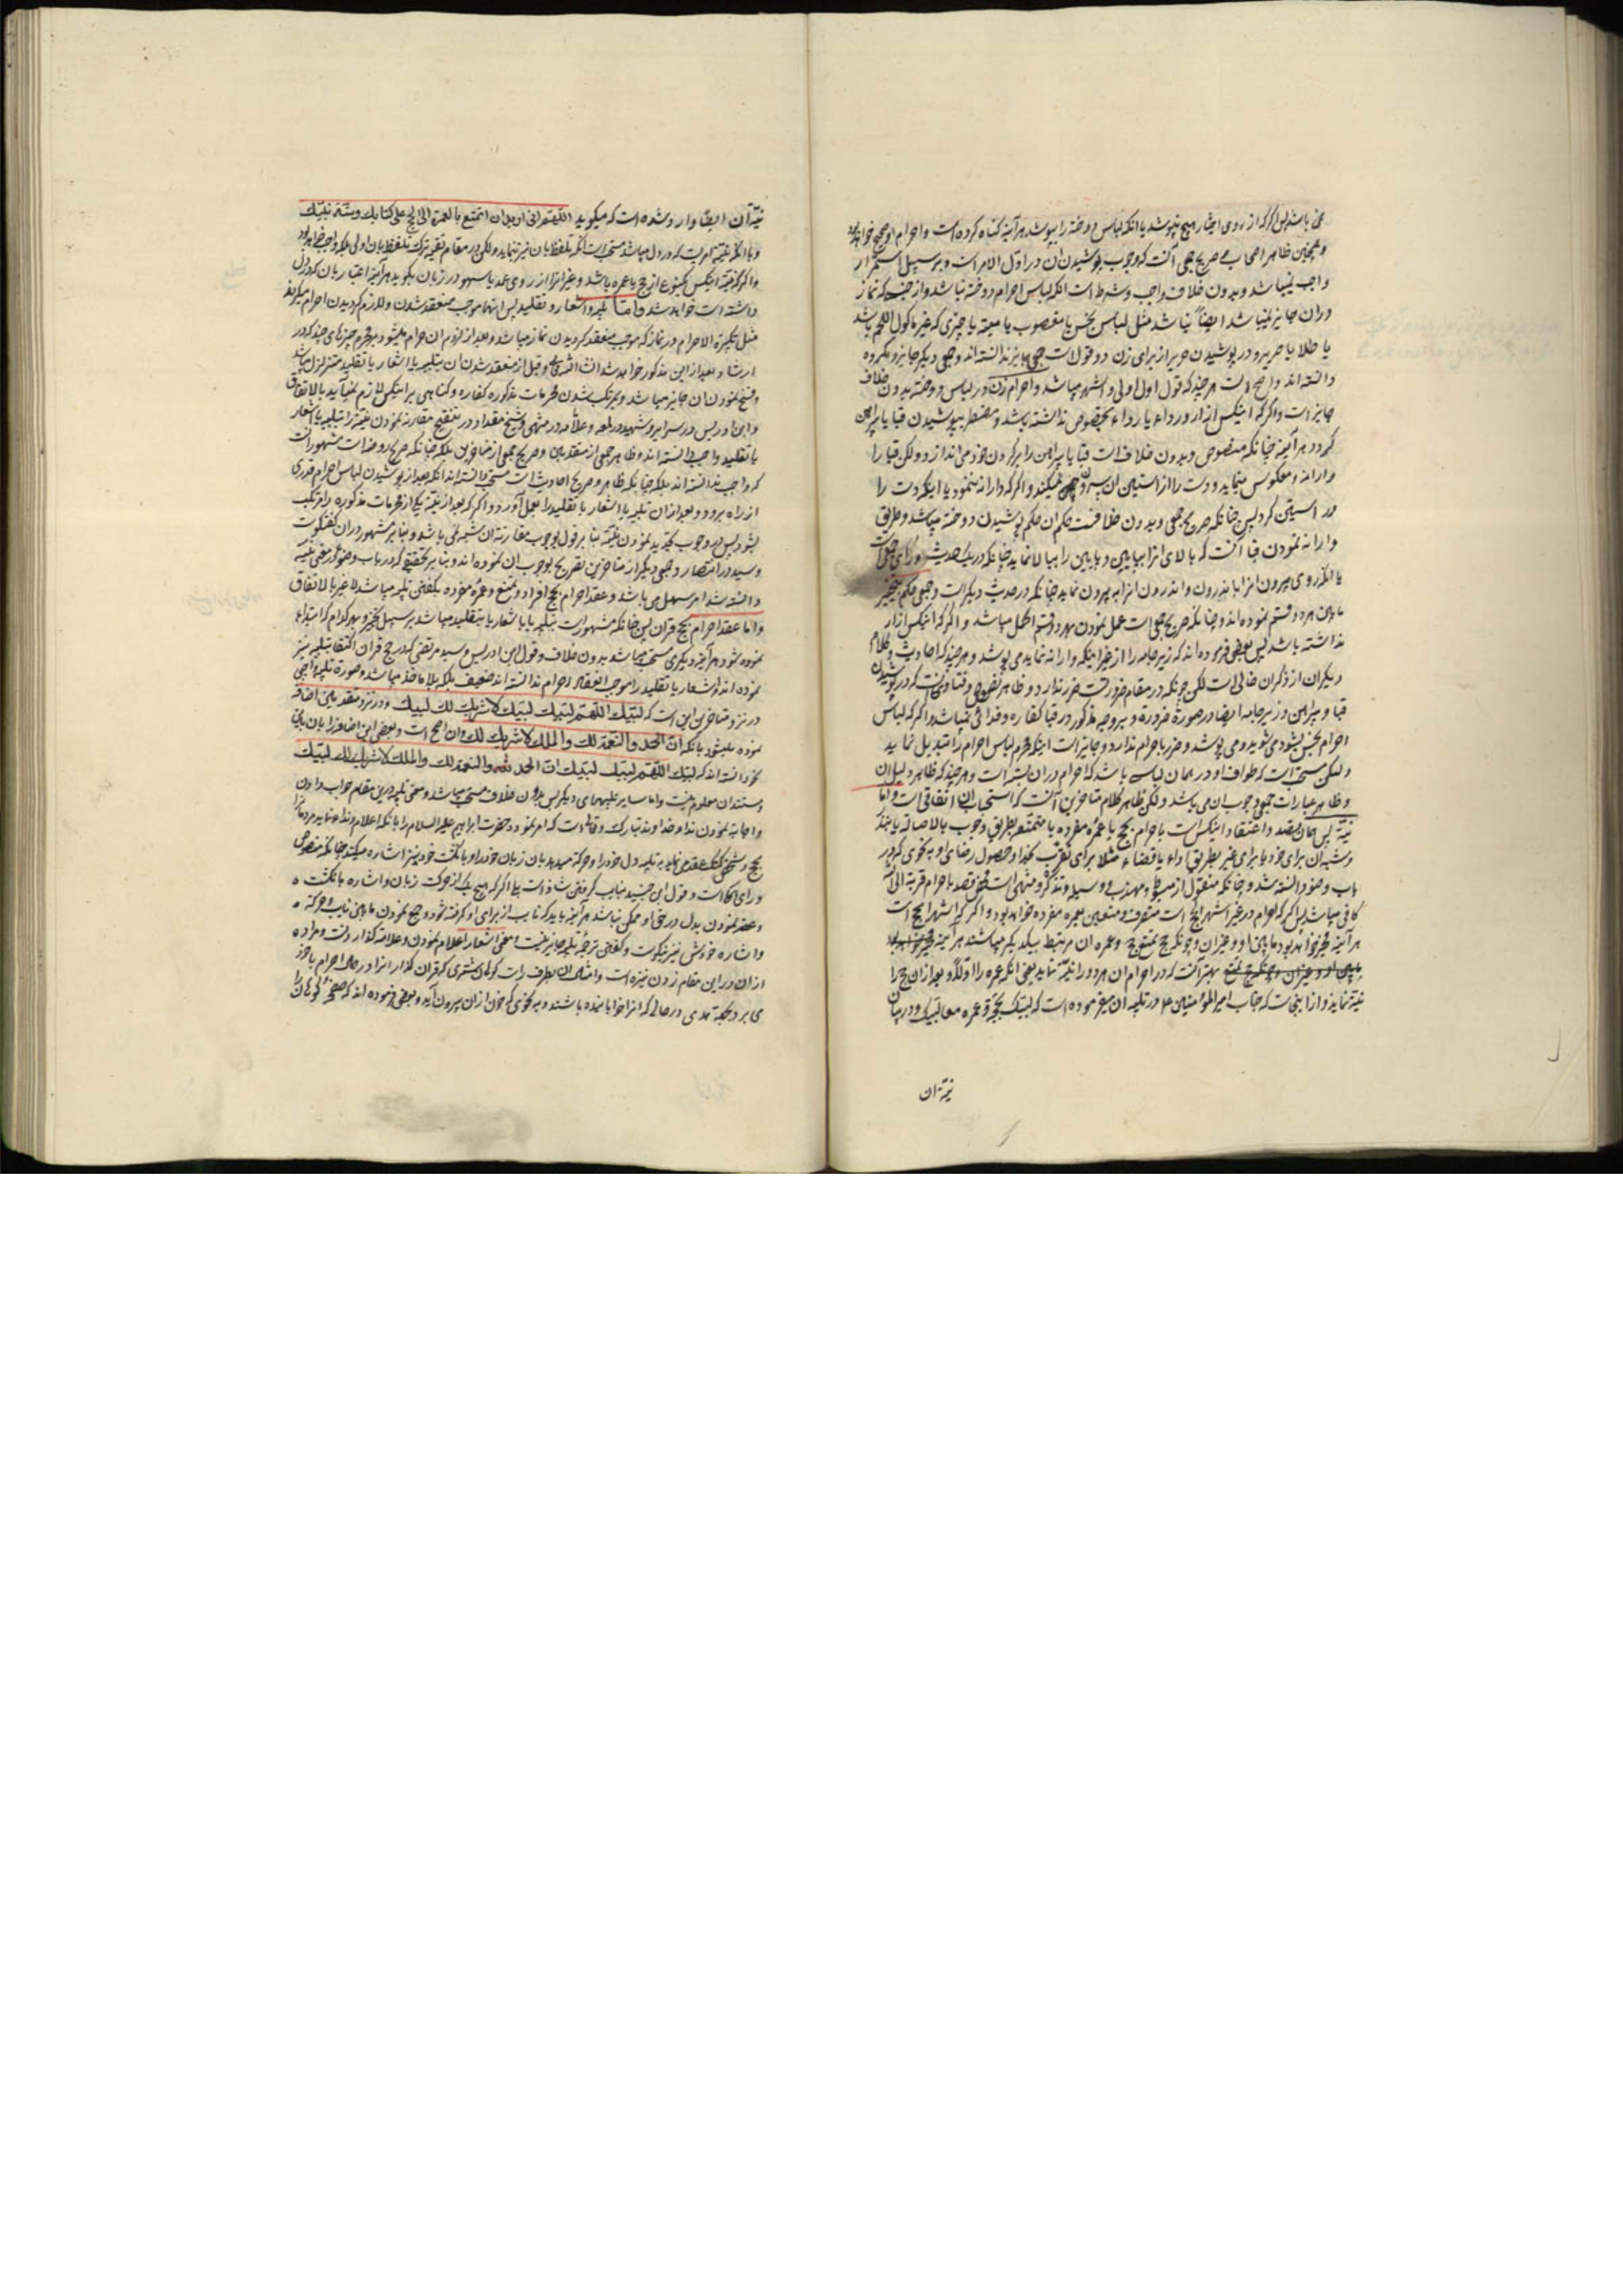 می باشد پس اگر که از روی اختیار هیچ نپوشد یا آنکه لباس دوخته را بپوشد هر آینه گناه کرده است و احرام او صحیح خواهد بود
و همچنین ظاهر اصحاب بی صریح جمعی آنست که وجوب پوشیدن آن در اول الامر است و بر سبیل استمرار
واجب نمیباشد و بدون خلاف واجب و شرط است آنکه لباس احرام دوخته نباشد و از جنسی که نماز
در آن جایز نمیباشد ایضاً نباشد مثل لباس نجس یا مغصوب یا میته یا چیزی که غیر ماکول اللحم باشد
یا طلا یا حریر و در پوشیدن حریر از برای زن دو قول است جمعی جایز ندانسته اند و جمعی دیگر جایز و مکروه
دانسته اند و اصح است هر چند که قول اول اولی و اشهر میباشد و احرام زن در لباس دوخته بدون خلاف
جایز است و اگر که اینکس ازار و رداء یا رداء بخصوص نداشته باشد و مضطر بپوشیدن قبا یا پیراهن
گردد هر آینه چنانکه منصوص و بدون خلاف است قبا یا پیراهن را بر گردن خود می اندازد و لکن قبا را
وارانه و معکوس مینماید و دست را از آستین آن بیرون نمیکند و اگر که وارانه ننمود یا اینکه دست را
در آستین کرد پس چنانکه صریح جمعی و بدون خلافست حکم آن حکم پوشیدن دوخته میباشد و طریق
وارانه نمودن قبا آنست که بالای آنرا بپایین و پایین را ببالا نماید چنانکه در یک حدیث و رای جمعی است
یا آنکه روی بیرون آنرا باندرون و اندرون آنرا به بیرون نماید چنانکه در حدیث دیگر است و جمعی حکم بتخییر
مابین هر دو قسم نموده اند و چنانکه صریح جمعی است عمل نمودن بهر دو قسم اکمل میباشد و اگر که اینکس ازار
نداشته باشد پس بعضی فرموده اند که زیر جامه را از غیر اینکه وارانه نماید می پوشد و هر چند که احادیث و کلام
دیگران از ذکر آن خالی است لکن چونکه در مقام ضرورتست ضرر ندارد و ظاهر نصوص و فتاوی آنست که در پوشیدن
قبا و پیراهن و زیر جامه ایضا در صورة ضرورة و بر وجه مذکور در قبا کفاره و فدائی نمیباشد و اگر که لباس
احرام نجس بشود می شوید و می پوشد و ضرر باحرام ندارد و جایز است اینکه محرم لباس احرام را تبدیل نماید
ولیکن مستحب است که طواف او در همان لباسی باشد که احرام در آن بسته است و هر چند که ظاهر دلیل آن
و ظاهر عبارات جمعی وجوب آن می باشد ولکن ظاهر کلام متاخرین آنست که استحباب آن اتفاقی است و اما
نیة پس همان قصد و اعتقاد اینکس است باحرام بحج یا عمره مفرده یا متمتعه بطریق وجوب بالاصاله یا بنذر
و شبه آن برای خود یا برای غیر بطریق اداء یا قضاء مثلا برای تقرب بخدا و حصول رضای او به نحوی که در
باب وضو دانسته شد و چنانکه منقول از مبسوط و مهذب و وسیله و تذکره و منتهی است محض قصد باحرام قربة الی الله
کافی میباشد پس اگر که احرام در غیر اشهر الحج است منصرف و متعین بعمره مفرده خواهد بود و اگر که اشهر الحج است
هر آینه مخیر خواهد بود مابین او و غیر آن و چونکه حج تمتع حج و عمره آن مرتبط بیکدیگر میباشند هر آینه
مابین او و غیر آن و چونکه حج تمتع بهتر آنست که در احرام آن هر دو را نیة نماید یعنی آنکه عمره را اولا و بعد از آن حج را
نیة نماید و از اینجاست که جناب امیر المؤمنین ع در تلبیه آن میفرموده است که لبیک بحجة و عمرة معا لبیک و در بیان
نیة آن
نیة آن ایضا وارد شده است که میگوید اللهم انی ارید ان اتمتع بالعمرة الی الحج علی کتابک و سنة نبیک
و با آنکه نیة امریست که در دل میباشد مستحب است آنکه تلفظ بآن نیز نماید ولکن در مقام تقیه ترک تلفظ بآن اولی بلکه واجب خواهد بود
و اگر که نیة اینکس بنوع از حج یا عمره باشد و غیر آنرا از روی عمد یا سهو در زبان بگوید هر آینه اعتبار بآن که در دل
داشته است خواهد شد و اما تلبیه و اشعار و تقلید پس آنها موجب منعقد شدن و لازم گردیدن احرام میگردند
مثل تکبیرة الاحرام در نماز که موجب منعقد گردیدن نماز میباشد و بعد از لزوم آن حرام میشود بر محرم چیزهای چند که در
ارشاد بعد از این مذکور خواهد شد انشاء الله تعالی و قبل از منعقد شدن آن بتلبیه یا اشعار یا تقلید متزلزل میباشد
و فسخ نمودن آن جایز میباشد و بمرتکب شدن محرمات مذکوره کفاره و گناهی بر اینکس لازم نمیآید بالاتفاق
و ابن ادریس در سرایر و شهید در لمعه و علامه در منتهی و شیخ مقداد در تنقیح مقارنه نمودن نیة را بتلبیه یا اشعار
یا تقلید واجب دانسته اند و ظاهر جمعی از متقدمین و صریح جمعی از متاخرین بلکه چنانکه صریح روضات مشهور آنست
که واجب ندانسته اند بلکه چنانکه ظاهر و صریح احادیث است مستحب دانسته اند آنکه بعد از پوشیدن لباس احرام قدری
از راه برود و بعد از آن تلبیه یا اشعار یا تقلید را بعمل آورد و اگر که بعد از نیة یکی از محرمات مذکوره را مرتکب
بشود پس در وجوب تجدید نمودن نیة بنا بر قول بوجوب مقارنه آن شبهه نمی باشد و بنا بر مشهور در آن گفتگوست
و سید در انتصار و جمعی دیگر از متاخرین تصریح بوجوب آن نموده اند و بنا بر تحقیقی که در باب وضو در معنی نیة
دانسته شد امر سهل می باشد و عقد احرام بحج افراد و تمتع و عمره مفرده بگفتن تلبیه میباشد لا غیر بالاتفاق
و اما عقد احرام بحج قران پس چنانکه مشهور است بتلبیه یا باشعار یا بتقلید میباشد بر سبیل تخییر و بهر کدام که ابتداء
نموده شود هر آینه دیگری مستحب میباشد بدون خلاف و قول ابن ادریس و سید مرتضی که در حج قران اکتفا بتلبیه نیز
نموده اند و اشعار یا تقلید را موجب انعقاد احرام ندانسته اند ضعیف بلکه بلا ماخذ میباشد و صورة تلبیه واجبی
در نزد متاخرین این است که لبیک اللهم لبیک لبیک لا شریک لک لبیک و در نزد متقدمین اضافه
نموده میشود بآنکه ان الحمد والنعمة لک والملک لا شریک لک و آن اصح است و بعضی این اضافه را باین
نحو دانسته اند که لبیک اللهم لبیک لبیک ان الحمد والنعمة لک والملک لا شریک لک لبیک
و مستند آن معلوم نیست و اما سایر تلبیهای دیگر پس بدون خلاف مستحب میباشد و معنی تلبیه در این مقام جواب دادن
و اجابة نمودن نداء خداوند تبارک و تعالی است که امر نمود حضرت ابراهیم علیه السلام را بآنکه اعلام و نداء نماید مردمانرا
بحج و شخص گنگ عقد می نماید به تلبیه دل خود را و حرکة میدهد بآن زبان خود را و بانگشت خود نیز اشاره میکند چنانکه منصوص
و رای اصحاب است و قول ابن جنید بنایب گرفتن شاذ است بلی اگر که هیچ یک از حرکت زبان و اشاره بانگشت
و عقد نمودن بدل در حق او ممکن نباشد هر آینه باید که نایب از برای او گرفته شود و جمع نمودن مابین نایب و حرکة
و اشاره خودش نیز نیکوست و گفتن ترجمه تلبیه جایز نیست و معنی اشعار اعلام نمودن و علامة گذاردنست و مراد
از آن در این مقام زدن نیزه است و امثال آن بطرف راست کوهان شتری که قران گذار آنرا در حال احرام با خود
می برد بجهة هدی در حالی که آنرا خوابانیده باشند و به نحوی که خون از آن بیرون آید و بعضی فرموده اند که صفحه کوهان را